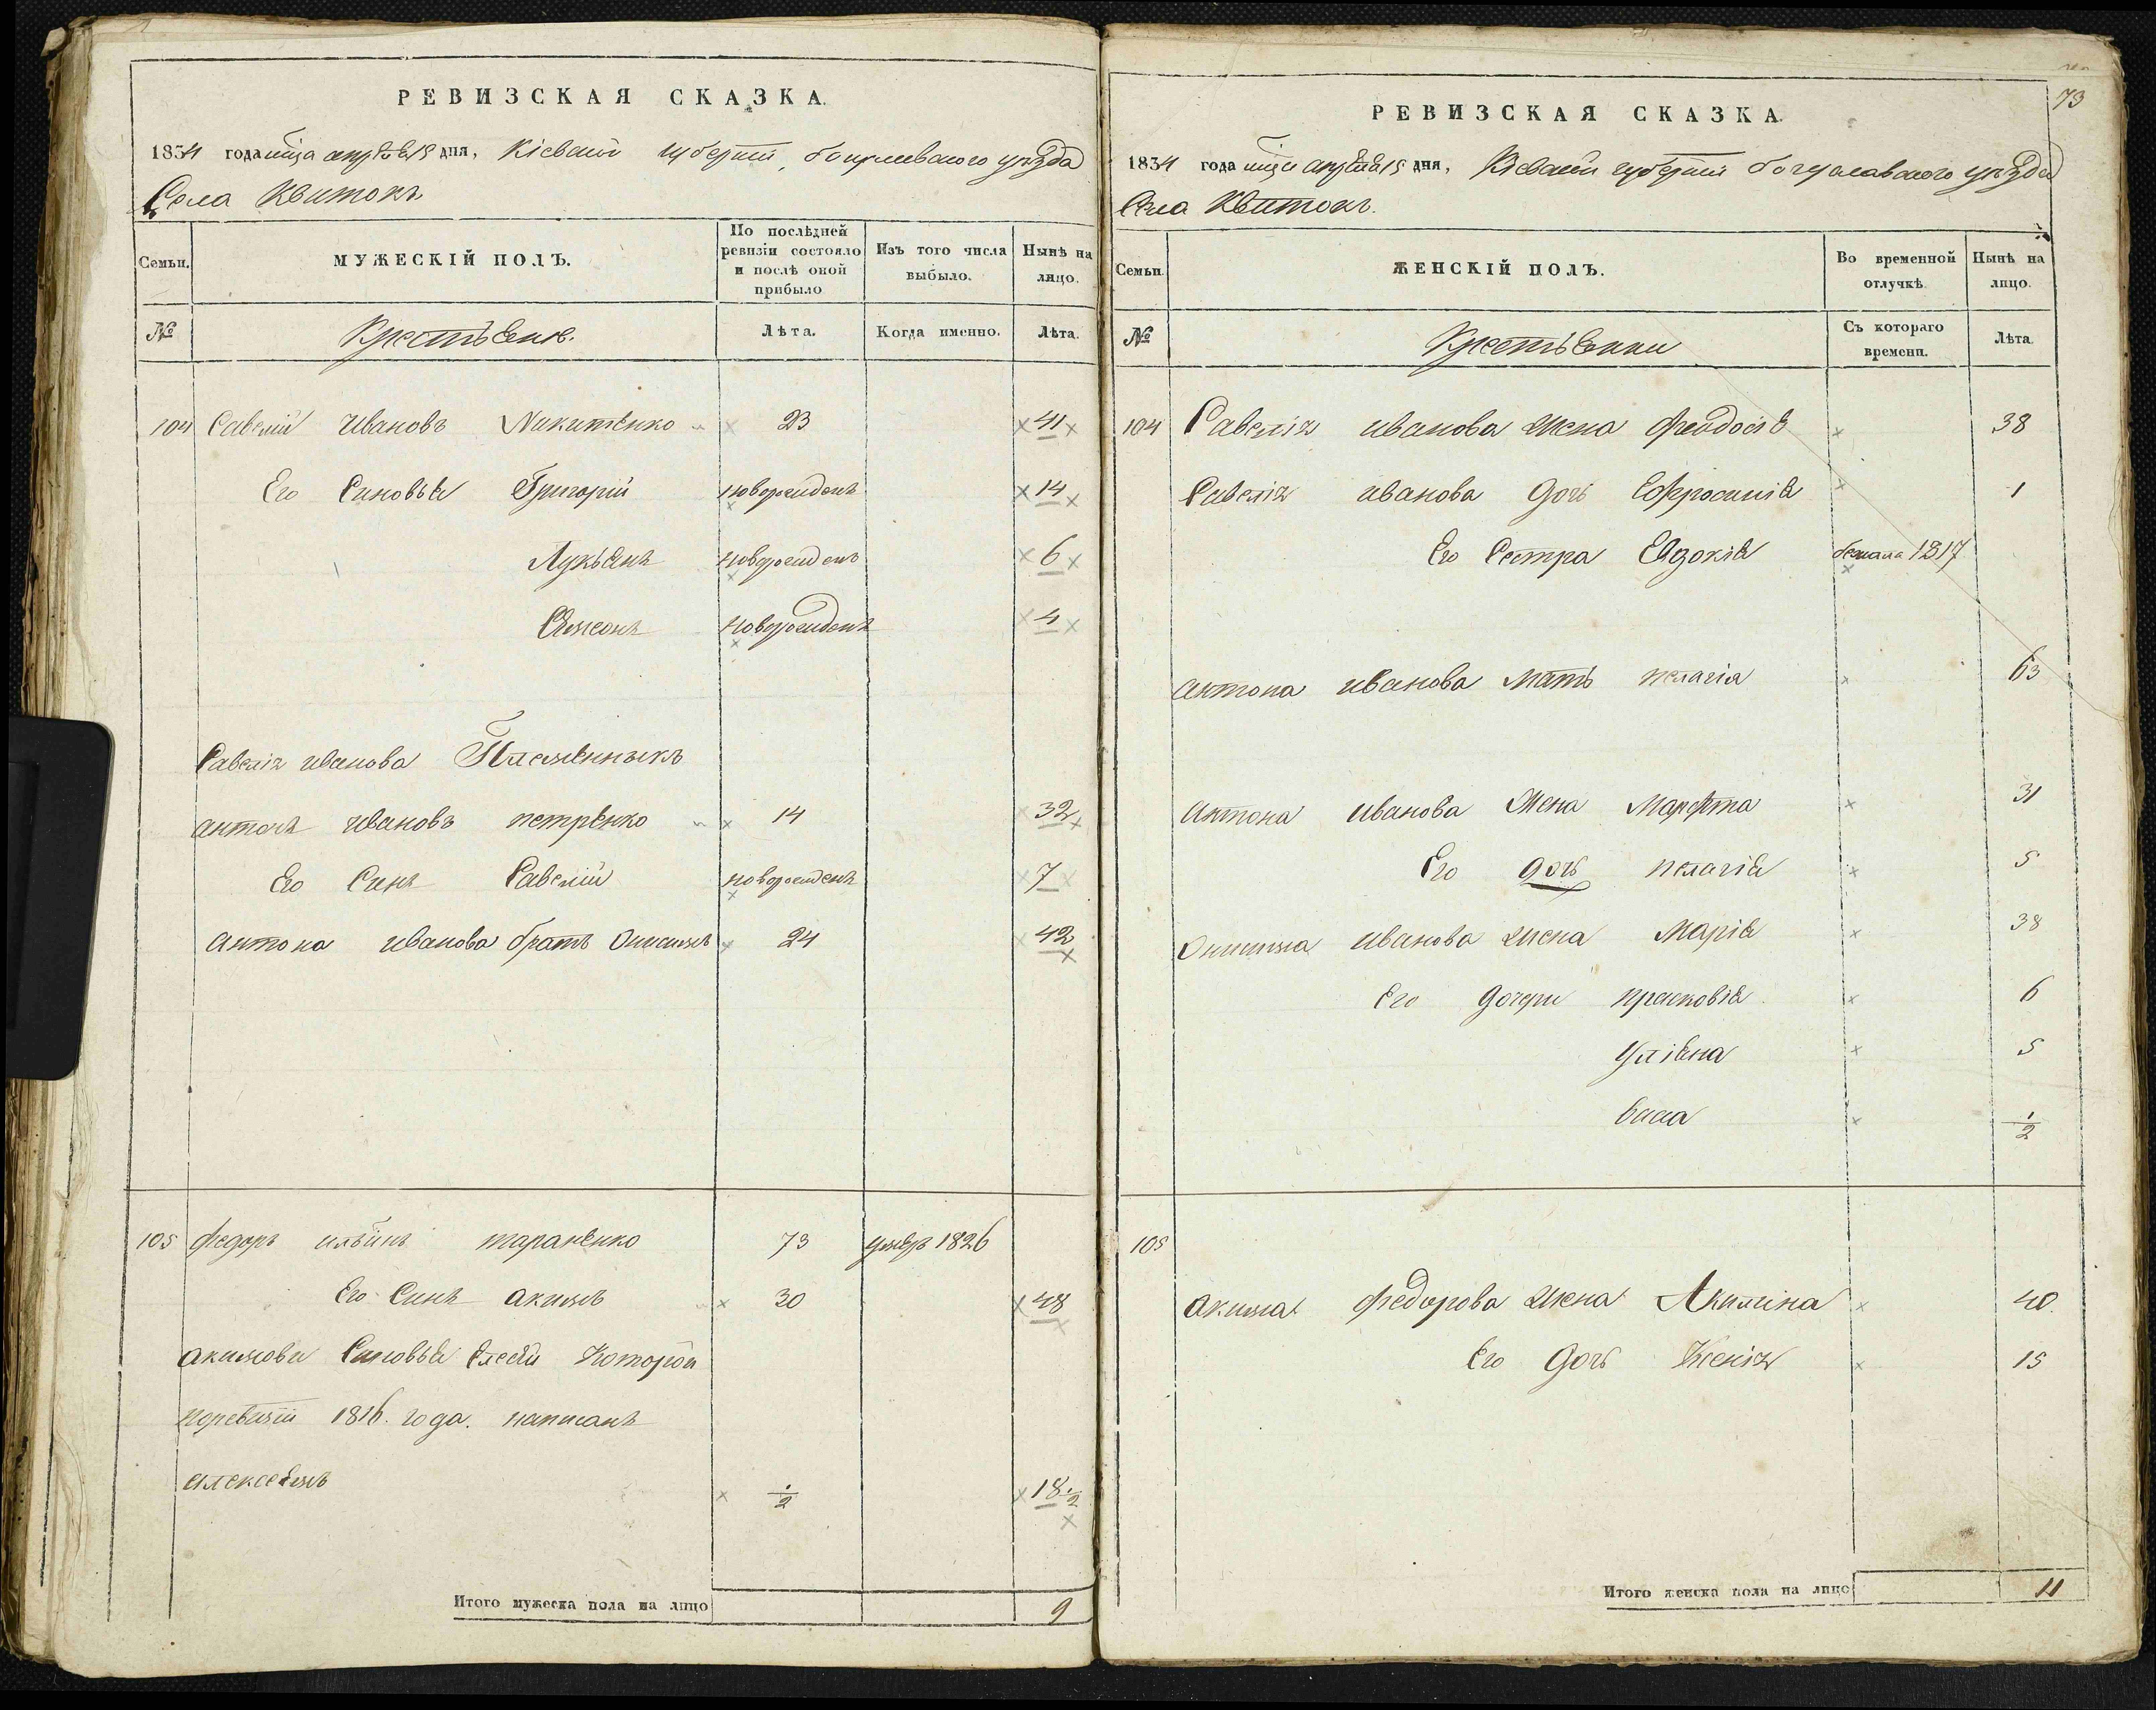 РЕВИЗСКАЯ СКАЗКА.
1834 года мѣсяца апрѣля 15 дня, Кіевской губерніи, богуславского уѣзда
Села Квитокъ
Семьи.
МУЖЕСКІЙ ПОЛЪ.
По послѣдней ревизіи состояло и послѣ оной прибыло
Изъ того числа выбыло.
Нынѣ на лицо.
№
Крестьяне.
Лѣта.
Когда именно.
Лѣта.
104 Савелій Ивановъ Никитенко 23 41
Его Синовья Григорій новорожденъ 14
Лукьянъ новорожденъ 6
Симеонъ новорожденъ 4
Савелія иванова Племенныкъ
антонъ Ивановъ петренко 14 32
Его Синъ Савелій новорожденъ 7
антона иванова братъ Онисимъ 24 42
105 федоръ ильинъ тараненко 73 умеръ 1826
Его Синъ акимъ 30 48
акимови Синовья Елесѣй Которой
поревизіи 1816. года. написанъ
алексеемъ 1/2 18 1/2
Итого мужеска пола на лицо 9
73
РЕВИЗСКАЯ СКАЗКА.
1834 года мѣсяца апрѣля 15 дня, Кіевской губерніи богуславского уѣзда
Села Квитокъ.
Семьи
ЖЕНСКІЙ ПОЛЪ.
Во временной отлучкѣ
Нынѣ на лицо.
№
Крестьянки
Съ котораго времени.
Лѣта.
104 Савелія иванова жена феодосія 38
Савелія иванова дочь Ефросинія 1
Его Сестра Евдокія бежала 1817
антона иванова мать пелагія 63
Антона иванова Жена Марфта 31
Его дочь пелагія 5
Онисима иванова жена Марія 38
Его дочери прасковія 6
Уліяна 5
васса 1/2
105
акима федорова жена Акилина 40.
Его дочь Ксенія 15
Итого женска пола на лицо 11